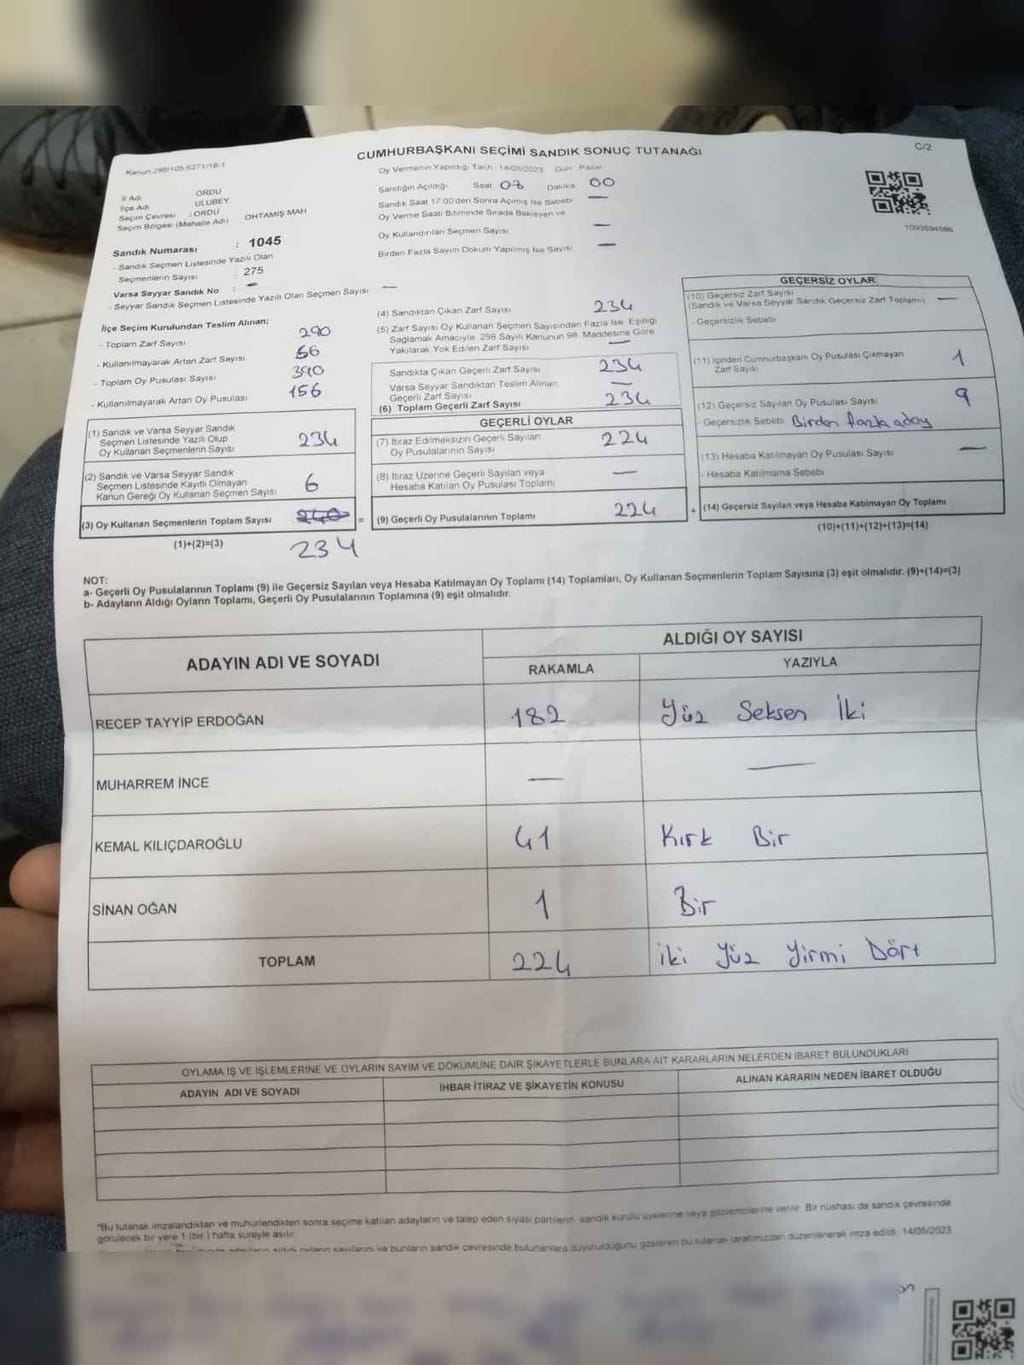 Kanun 298/105 6271/18-1
CUMHURBAŞKANI SEÇİMİ SANDIK SONUÇ TUTANAĞI
C/2
İl Adı ORDU
İlçe Adı ULUBEY
Seçim Çevresi : ORDU
Seçim Bölgesi (Mahalle Adı) OHTAMIŞ MAH
Sandık Numarası : 1045
- Sandık Seçmen Listesinde Yazılı Olan
Seçmenlerin Sayısı : 275
Varsa Seyyar Sandık No : —
- Seyyar Sandık Seçmen Listesinde Yazılı Olan Seçmen Sayısı —
İlçe Seçim Kurulundan Teslim Alınan;
- Toplam Zarf Sayısı 290
- Kullanılmayarak Artan Zarf Sayısı 56
- Toplam Oy Pusulası Sayısı 390
- Kullanılmayarak Artan Oy Pusulası 156
(1) Sandık ve Varsa Seyyar Sandık
Seçmen Listesinde Yazılı Olup
Oy Kullanan Seçmenlerin Sayısı 234
(2) Sandık ve Varsa Seyyar Sandık
Seçmen Listesinde Kayıtlı Olmayan
Kanun Gereği Oy Kullanan Seçmen Sayısı 6
(3) Oy Kullanan Seçmenlerin Toplam Sayısı 240 =
(1)+(2)=(3) 234
Oy Vermenin Yapıldığı Tarih : 14/05/2023 Gün : Pazar
Sandığın Açıldığı Saat 07 Dakika 00
Sandık Saat 17.00'den Sonra Açılmış İse Sebebi —
Oy Verme Saati Bitiminde Sırada Bekleyen ve
Oy Kullandırılan Seçmen Sayısı —
Birden Fazla Sayım Döküm Yapılmış İse Sayısı —
(4) Sandıktan Çıkan Zarf Sayısı 234
(5) Zarf Sayısı Oy Kullanan Seçmen Sayısından Fazla İse, Eşitliği
Sağlamak Amacıyla, 298 Sayılı Kanunun 98. Maddesine Göre
Yakılarak Yok Edilen Zarf Sayısı —
Sandıkta Çıkan Geçerli Zarf Sayısı 234
Varsa Seyyar Sandıktan Teslim Alınan
Geçerli Zarf Sayısı —
(6) Toplam Geçerli Zarf Sayısı 234
GEÇERLİ OYLAR
(7) İtiraz Edilmeksizin Geçerli Sayılan
Oy Pusulalarının Sayısı 224
(8) İtiraz Üzerine Geçerli Sayılan veya
Hesaba Katılan Oy Pusulası Toplamı —
(9) Geçerli Oy Pusulalarının Toplamı 224 +
1093594586
GEÇERSİZ OYLAR
(10) Geçersiz Zarf Sayısı
(Sandık ve Varsa Seyyar Sandık Geçersiz Zarf Toplamı) —
- Geçersizlik Sebebi
(11) İçinden Cumhurbaşkanı Oy Pusulası Çıkmayan
Zarf Sayısı 1
(12) Geçersiz Sayılan Oy Pusulası Sayısı 9
- Geçersizlik Sebebi Birden fazla aday
(13) Hesaba Katılmayan Oy Pusulası Sayısı —
- Hesaba Katılmama Sebebi
(14) Geçersiz Sayılan veya Hesaba Katılmayan Oy Toplamı
(10)+(11)+(12)+(13)=(14)
NOT:
a- Geçerli Oy Pusulalarının Toplamı (9) ile Geçersiz Sayılan veya Hesaba Katılmayan Oy Toplamı (14) Toplamları, Oy Kullanan Seçmenlerin Toplam Sayısına (3) eşit olmalıdır. (9)+(14)=(3)
b- Adayların Aldığı Oyların Toplamı, Geçerli Oy Pusulalarının Toplamına (9) eşit olmalıdır.
ADAYIN ADI VE SOYADI
ALDIĞI OY SAYISI
RAKAMLA YAZIYLA
RECEP TAYYİP ERDOĞAN 182 Yüz Seksen İki
MUHARREM İNCE — —
KEMAL KILIÇDAROĞLU 41 Kırk Bir
SİNAN OĞAN 1 Bir
TOPLAM 224 İki Yüz Yirmi Dört
OYLAMA İŞ VE İŞLEMLERİNE VE OYLARIN SAYIM VE DÖKÜMÜNE DAİR ŞİKAYETLERLE BUNLARA AİT KARARLARIN NELERDEN İBARET BULUNDUKLARI
ADAYIN ADI VE SOYADI İHBAR İTİRAZ VE ŞİKAYETİN KONUSU ALINAN KARARIN NEDEN İBARET OLDUĞU
*Bu tutanak imzalandıktan ve mühürlendikten sonra seçime katılan adayların ve talep eden siyasi partilerin sandık kurulu üyelerine veya gözlemcilerine verilir. Bir nüshası da sandık çevresinde
görülecek bir yere 1 (bir ) hafta süreyle asılır.
adayların aldığı oyların sayılarını ve bunların sandık çevresinde bulunanlara duyurulduğunu gösteren bu tutanak tarafımızdan düzenlenerek imza edildi. 14/05/2023